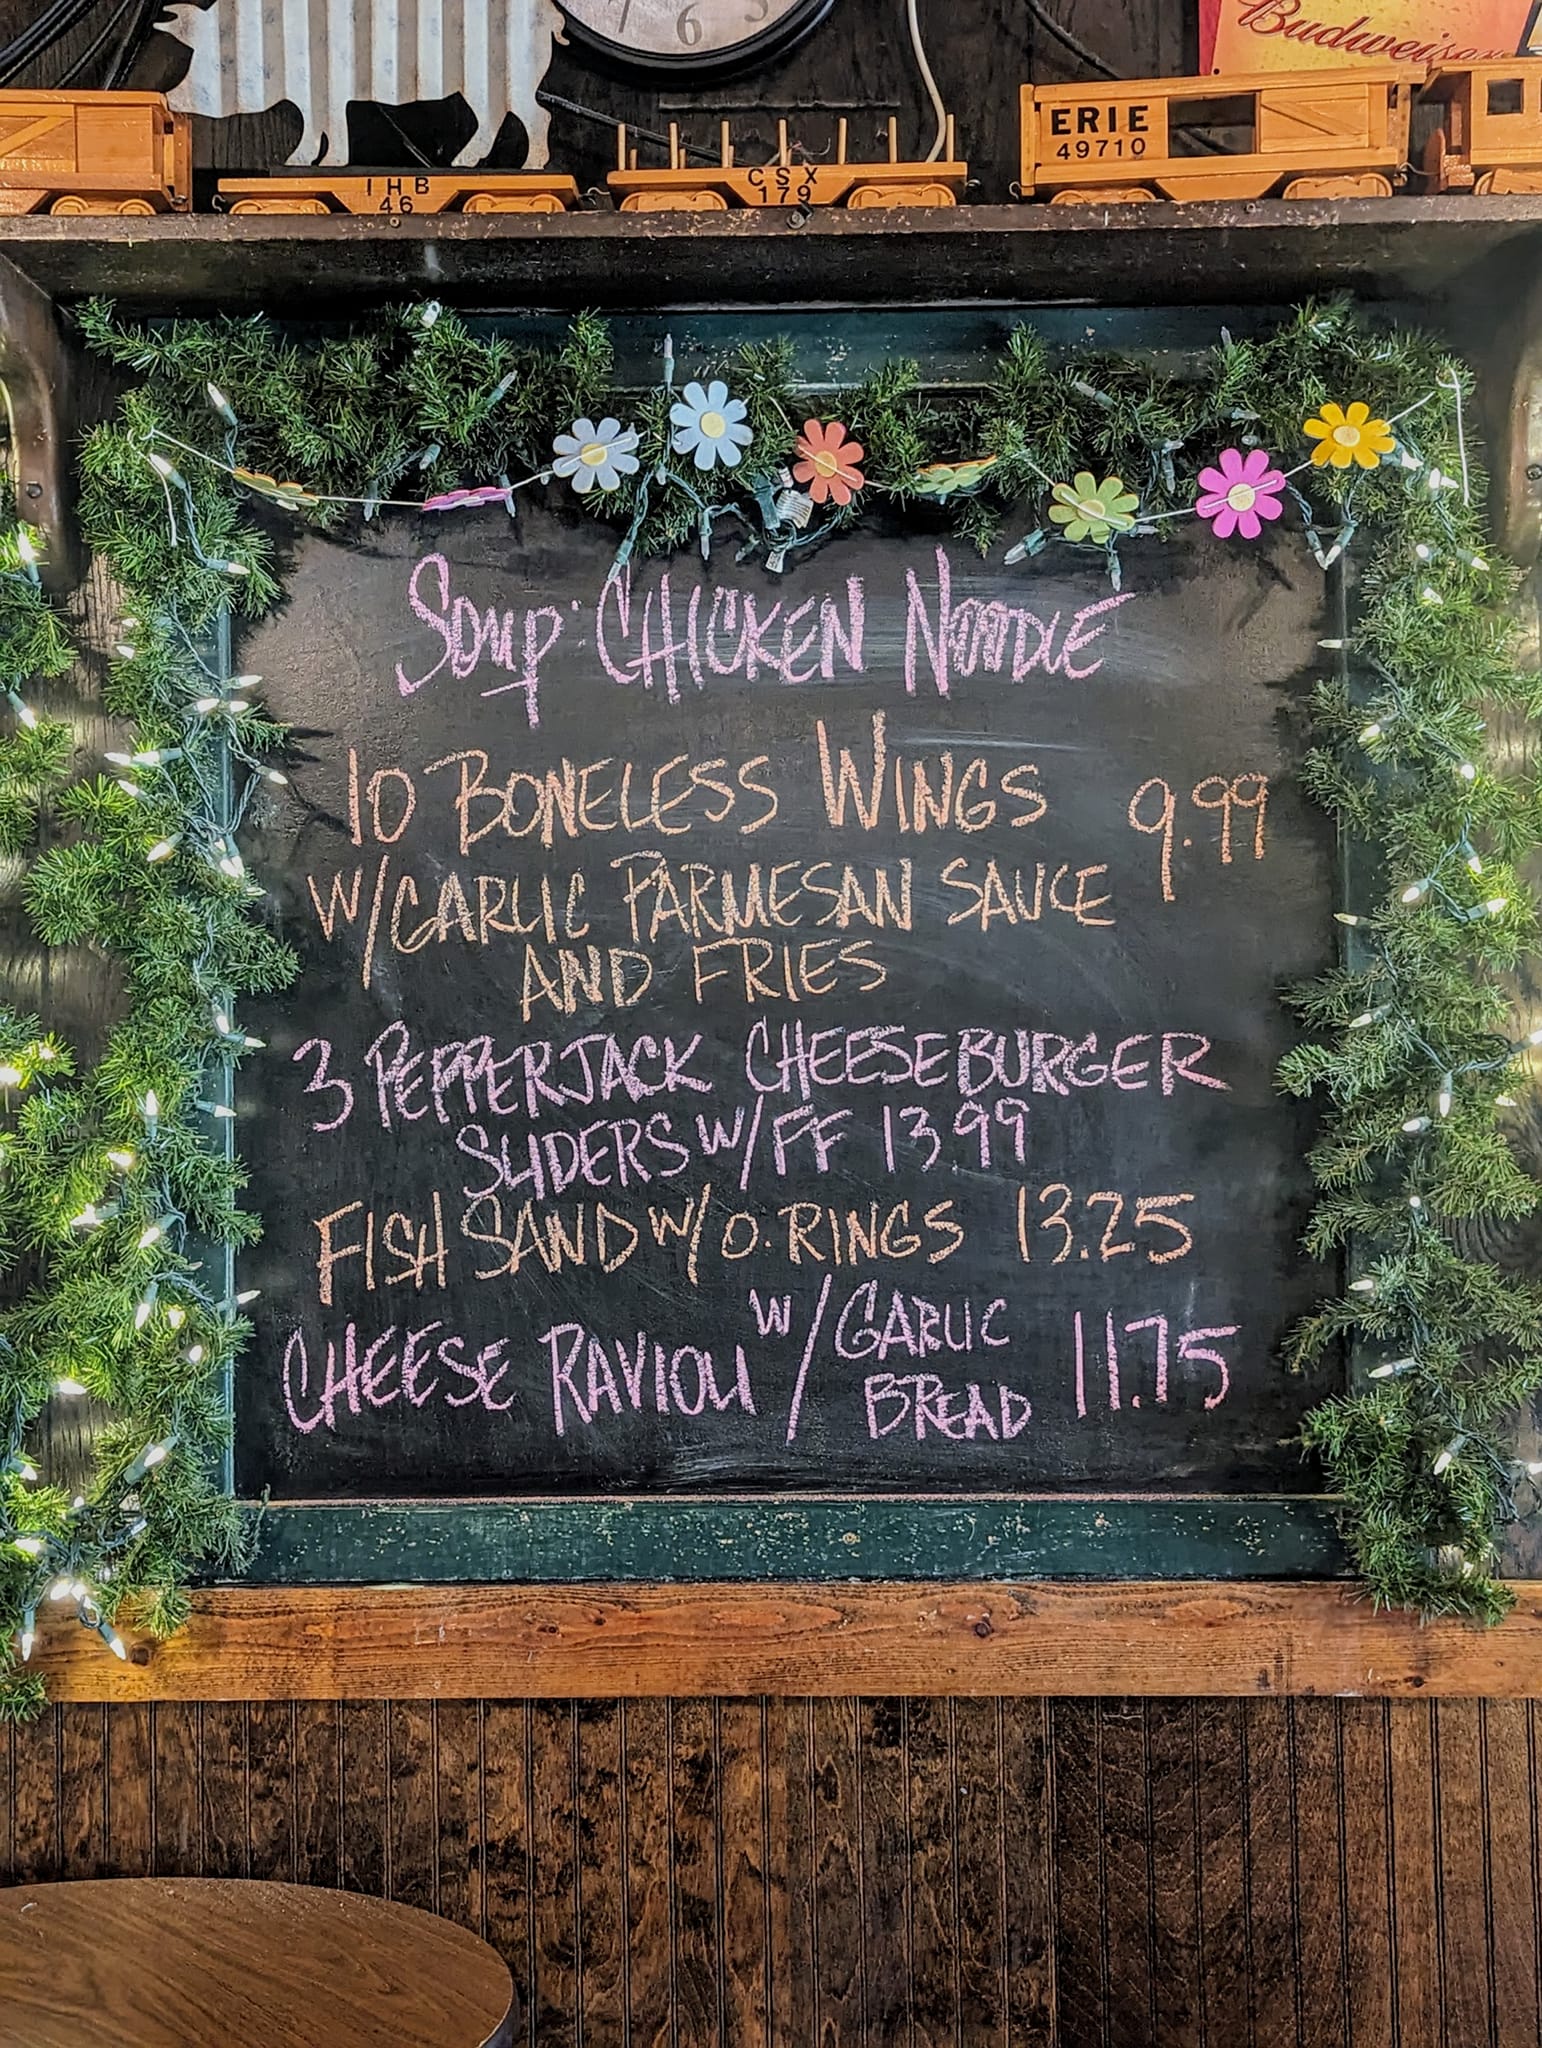 7 6 5
Budweiser
IHB
46
CSX
179
ERIE
49710
Soup: CHICKEN NOODLE
10 BONELESS WINGS 9.99
W/GARLIC PARMESAN SAUCE
AND FRIES
3 PEPPERJACK CHEESEBURGER
SLIDERS W/FF 13.99
FISH SAND W/O. RINGS 13.25
CHEESE RAVIOLI W/GARLIC
BREAD 11.75